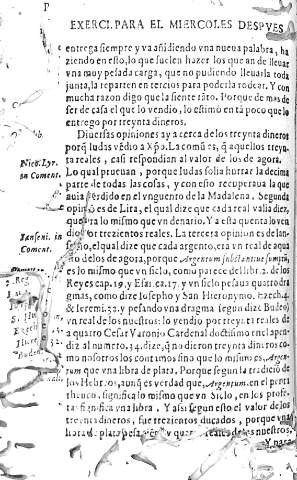 P
EXERCI. PARA EL MIERCOLES DESPVES
entrega siempre y va añidiendo vna nueva palabra, ha
ziendo en esto, lo que suelen hazer los que an de lleuar
vna muy pesada carga, que no pudiendo lleuarla toda
junta, la reparten en tercios para poderla rodear. Y con
mucha razon digo que la siente tãto. Porque de mas de
ser de casa el que lo vendio, lo estimò en tã poco que lo
entrego por treynta dineros.
Diuersas opiniones ay a cerca de los treynta dineros
porq̃ Iudas vẽdio a Xpo. La comũ es, q̃ aquellos treyn
ta reales, casi respondian al valor de los de agora.
Nico. Lyr.
in Coment.
Lo qual prueuan, porque Iudas solia hurtar la decima
parte de todas las cosas, y con esto recuperaua la que
auia perdido en el vnguento de la Madalena. Segunda
opiniõ es de Lira, el qual dize que cada dinero valia diez,
que era lo mismo que vn denario. Y a esta quenta lo vẽ
dio por trezientos reales. La tercera opinion es de Ian-
Janseni. in
Coment.
senio, el qual dize que cada argento, era vn real de aquã
no de los de agora, porque Argentum substantiue sumptũ,
es lo mismo que vn siclo, como parece del lib. 2. de los
Reyes cap. 19, y Esai. ca. 17. y vn siclo pesaua quatro dra
gmas, como dize Iosepho y San Hieronymo. Ezech. 4
& Ieremi. 32. y pesando vna dragma (segun dize Budeo)
vn real de los nuestros: lo vendio por treynta reales de
a quatro Cesar Varonio Cardenal doctissimo en el apen
diz al numero. 34. dize, q̃ no dieron treynta dineros co
mo nosotros los contamos sino que lo mismo es, Argen
tum que vna libra de plata. Porque segun la tradiciõ de
los Hebreos, aunq̃ es verdad que, Argentum en el penta
theuco, significa lo mismo que vn Siclo, en los profe-
tas significa vna libra. Y assi segun esto el valor de los
treynta dineros, fue trezientos ducados, porque vna
libra de plata pesa
reales de los nuestros.
Y para